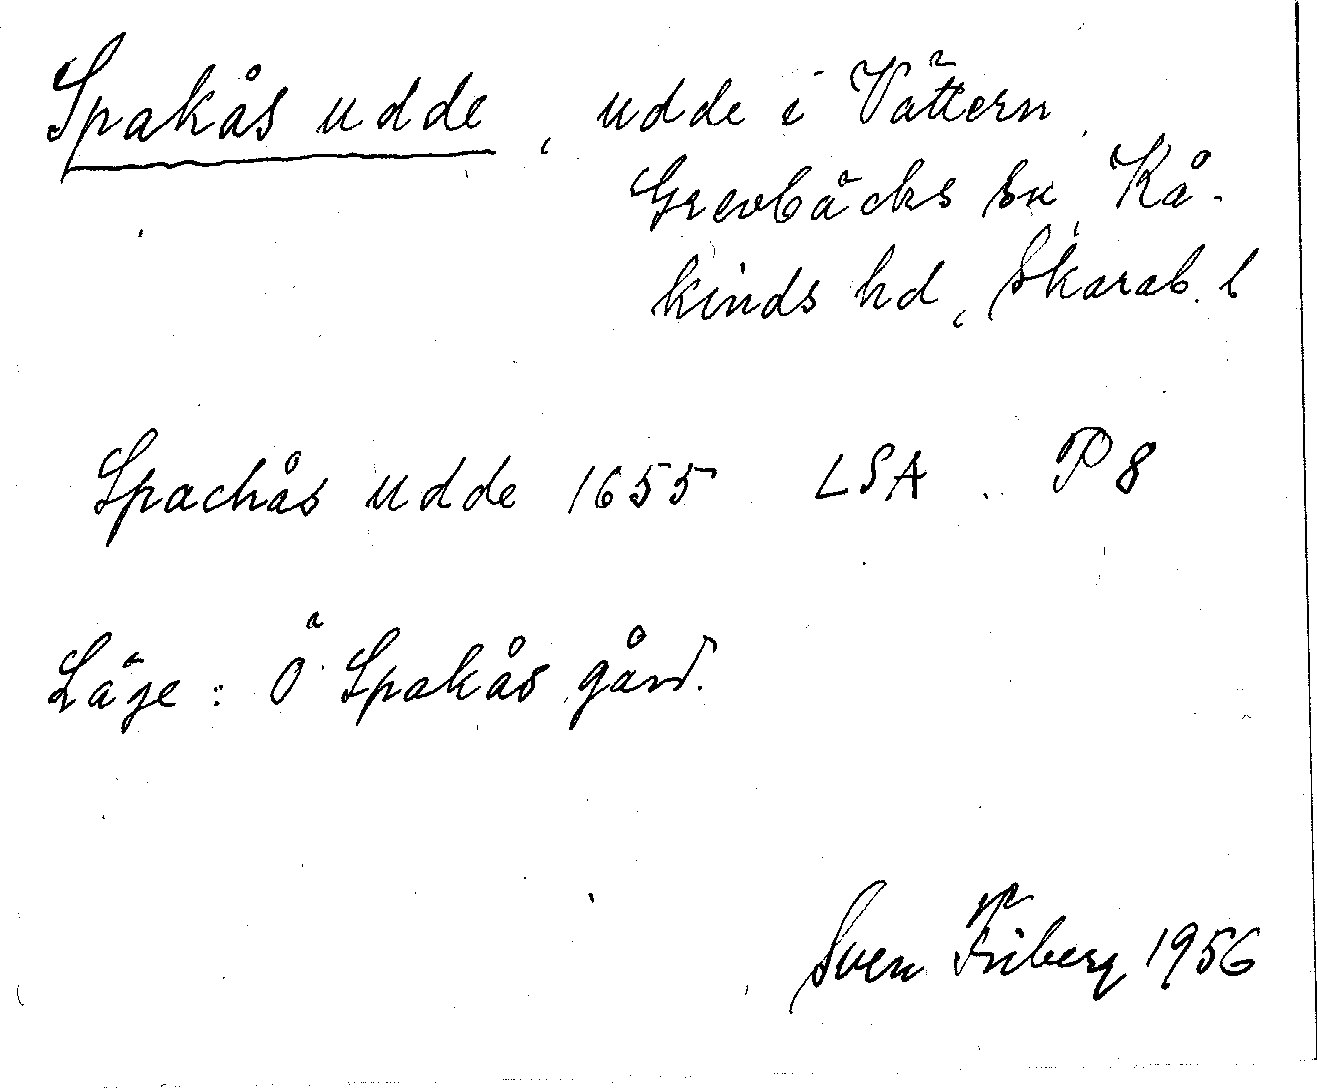 Spakås udde, udde i Vättern,
Grevbäcks sn, Kå-
kinds hd, Skarab. l
Spachås udde 1655 LSA. P 8
Läge: Ö Spakås gård.
Sven Friberg 1956